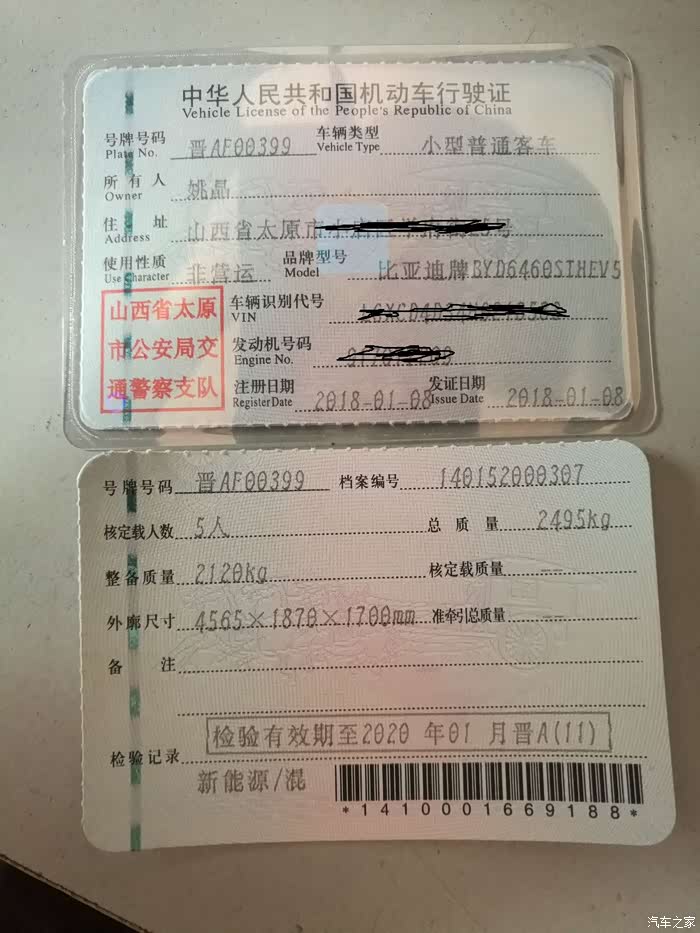 中华人民共和国机动车行驶证
Vehicle License of the People's Republic of China
号牌号码 晋AF00399 车辆类型 小型普通客车
Plate No. Vehicle Type
所有人 姚晶
Owner
住址 山西省太原市 号
Address
使用性质 非营运 品牌型号 比亚迪牌BYD6460STHEV5
Use Character Model
山西省太原
市公安局交
通警察支队
车辆识别代号
VIN
发动机号码
Engine No.
注册日期 2018-01-08 发证日期 2018-01-08
Register Date Issue Date
号牌号码 晋AF00399 档案编号 140152000307
核定载人数 5人 总质量 2495kg
整备质量 2120kg 核定载质量 --
外廓尺寸 4565×1870×1700mm 准牵引总质量 --
备注
检验有效期至2020 年01 月晋A(11)
检验记录
新能源/混
*1410001669188*
汽车之家